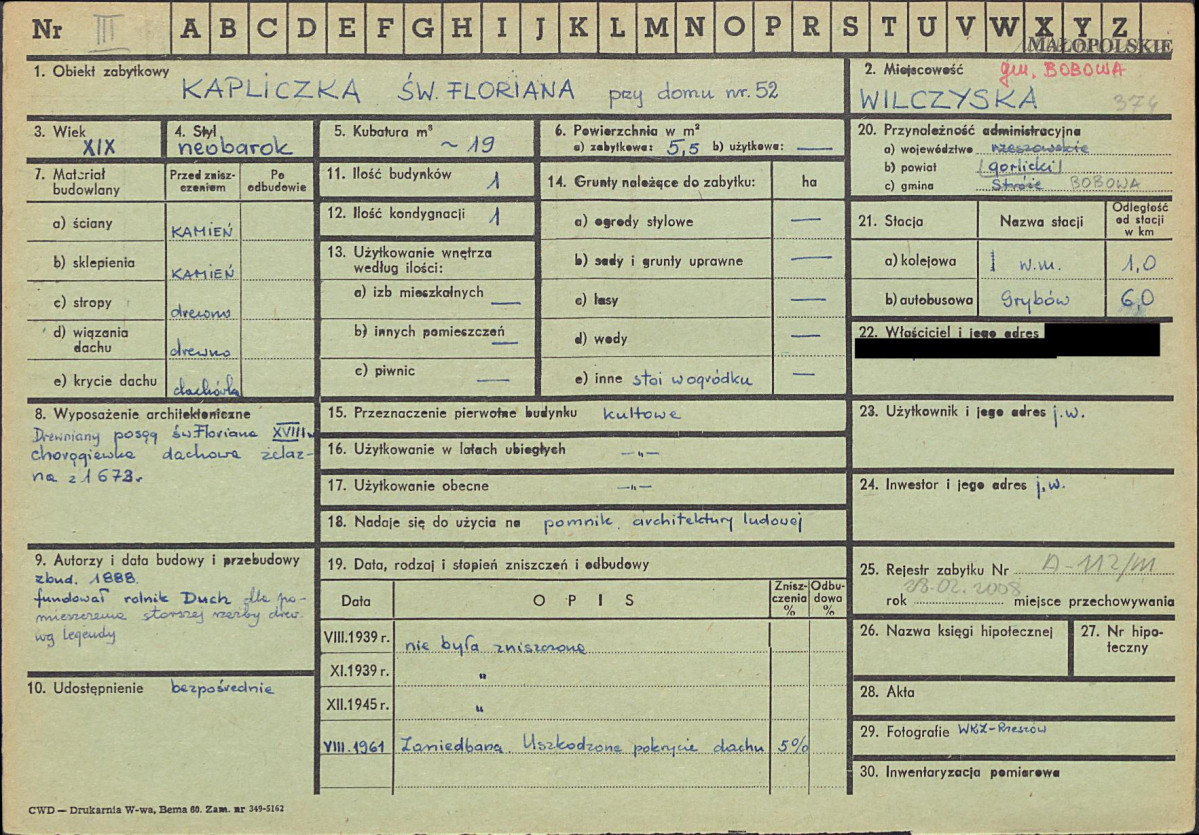 Nr III A B C D E F G H I J K L M N O P R S T U V W X Y Z
MAŁOPOLSKIE
1. Obiekt zabytkowy
KAPLICZKA ŚW. FLORIANA przy domu nr. 52
2. Miejscowość gm. BOBOWA
WILCZYSKA 374
3. Wiek
XIX
4. Styl
neobarok
5. Kubatura m³
~ 19
6. Powierzchnia w m²
a) zabytkowa: 5,5 b) użytkowa: —
7. Materiał
budowlany
Przed znisz-
czeniem
Po
odbudowie
a) ściany KAMIEŃ
b) sklepienia KAMIEŃ
c) stropy drewno
d) wiązania
dachu drewno
e) krycie dachu dachówka
8. Wyposażenie architektoniczne
Drewniany posąg św. Floriana XVIII w
chorągiewka dachowa żelaz-
na z 1673r
9. Autorzy i data budowy i przebudowy
zbud. 1888.
fundował rolnik Duch dla po-
mieszczenia starszej rzeźby drew.
wg legendy
10. Udostępnienie bezpośrednie
11. Ilość budynków 1
12. Ilość kondygnacji 1
13. Użytkowanie wnętrza
według ilości:
a) izb mieszkalnych —
b) innych pomieszczeń —
c) piwnic —
14. Grunty należące do zabytku: ha
a) ogrody stylowe —
b) sady i grunty uprawne —
c) lasy —
d) wody —
e) inne stoi w ogródku —
15. Przeznaczenie pierwotne budynku kultowe
16. Użytkowanie w latach ubiegłych —„—
17. Użytkowanie obecne —„—
18. Nadaje się do użycia na pomnik architektury ludowej
19. Data, rodzaj i stopień zniszczeń i odbudowy
Data
O P I S
Znisz-
czenia
%
Odbu-
dowa
%
VIII.1939 r. nie była zniszczona
XI.1939 r. „
XII.1945 r. „
VIII.1961 Zaniedbana. Uszkodzone pokrycie dachu 5%
20. Przynależność administracyjna
a) województwo rzeszowskie
b) powiat /gorlicki/
c) gmina Stróże BOBOWA
21. Stacja
Nazwa stacji
Odległość
od stacji
w km
a) kolejowa w.m. 1,0
b) autobusowa Grybów 6,0
22. Właściciel i jego adres
23. Użytkownik i jego adres j.w.
24. Inwestor i jego adres j.w.
25. Rejestr zabytku Nr A-112/M
28.02.2008
rok miejsce przechowywania
26. Nazwa księgi hipotecznej
27. Nr hipo-
teczny
28. Akta
29. Fotografie WKZ-Rzeszów
30. Inwentaryzacja pomiarowa
CWD — Drukarnia W-wa, Bema 60. Zam. nr 349-5162